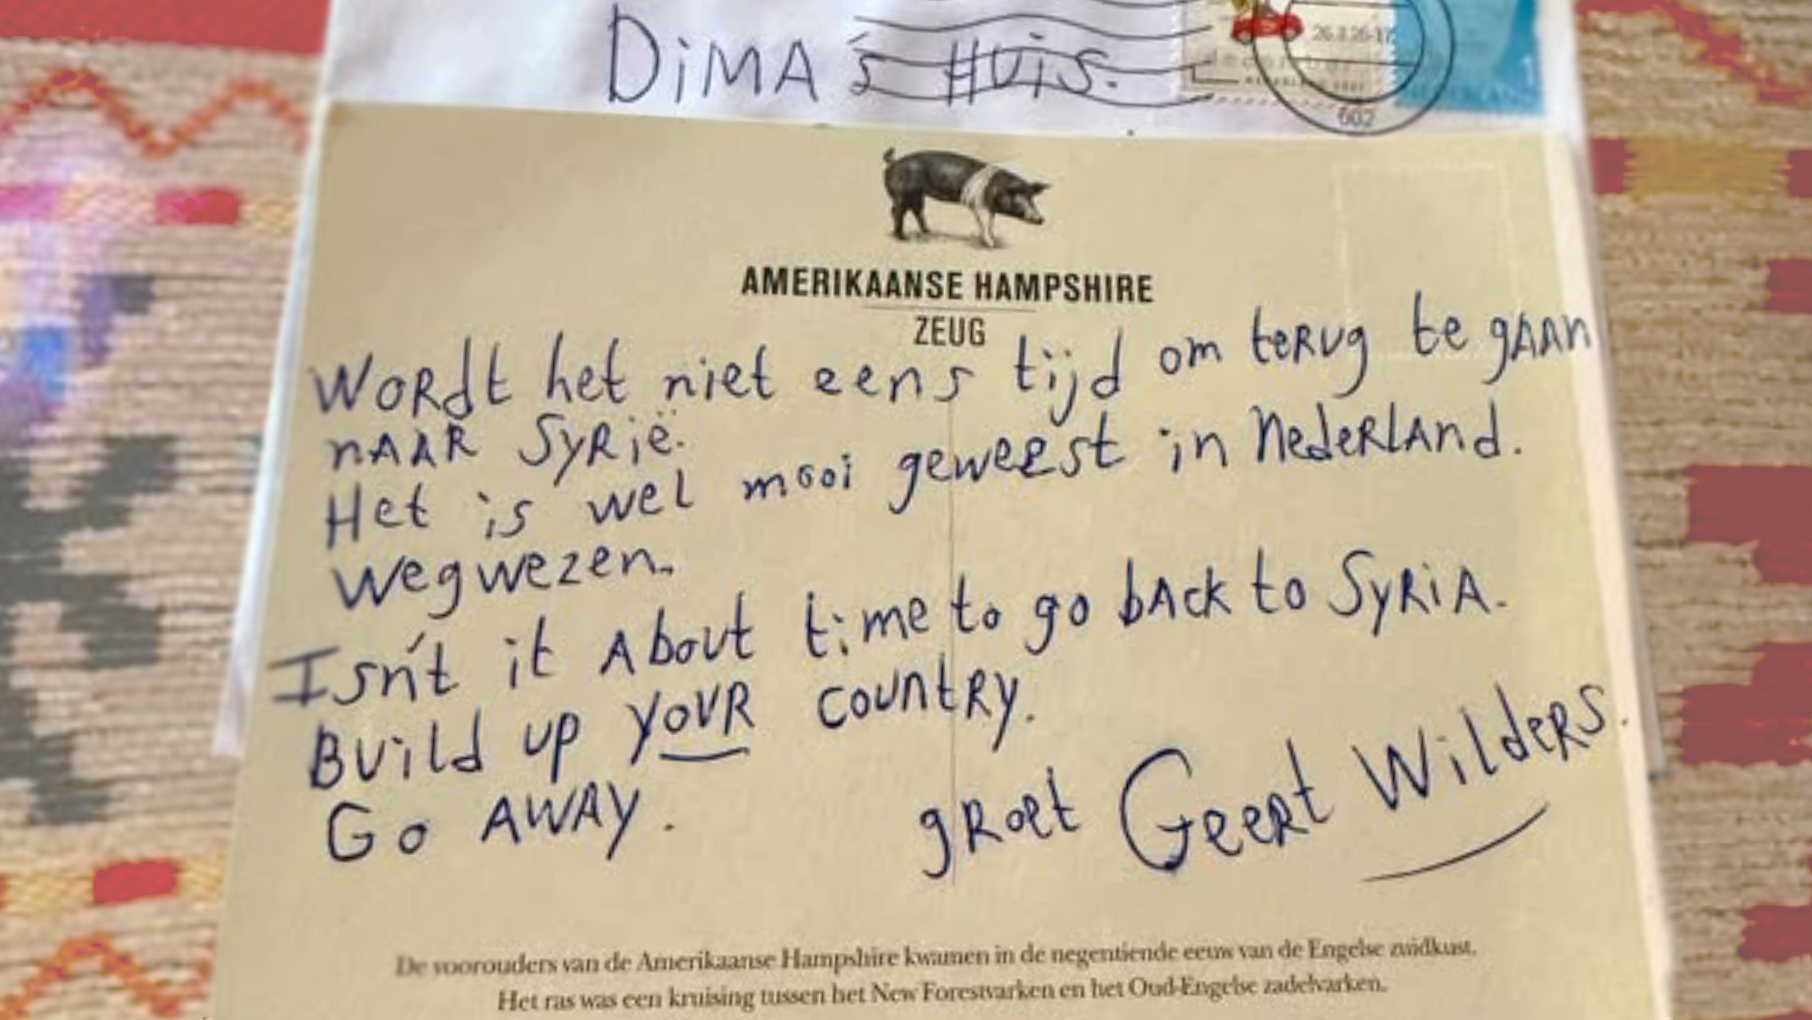 DiMA's HUiS.
26.3.26-17
602
AMERIKAANSE HAMPSHIRE
ZEUG
WoRdt het niet eens tijd om teRug te gAAn
nAAR SyRië.
Het is wel mooi geweest in NedeRLAnd.
wegwezen.
Isn't it About time to go bAck to SyRiA.
Build up youR countRy.
Go AWAY.
gRoet GeeRt WildeRs.
De voorouders van de Amerikaanse Hampshire kwamen in de negentiende eeuw van de Engelse zuidkust.
Het ras was een kruising tussen het New Forestvarken en het Oud-Engelse zadelvarken.